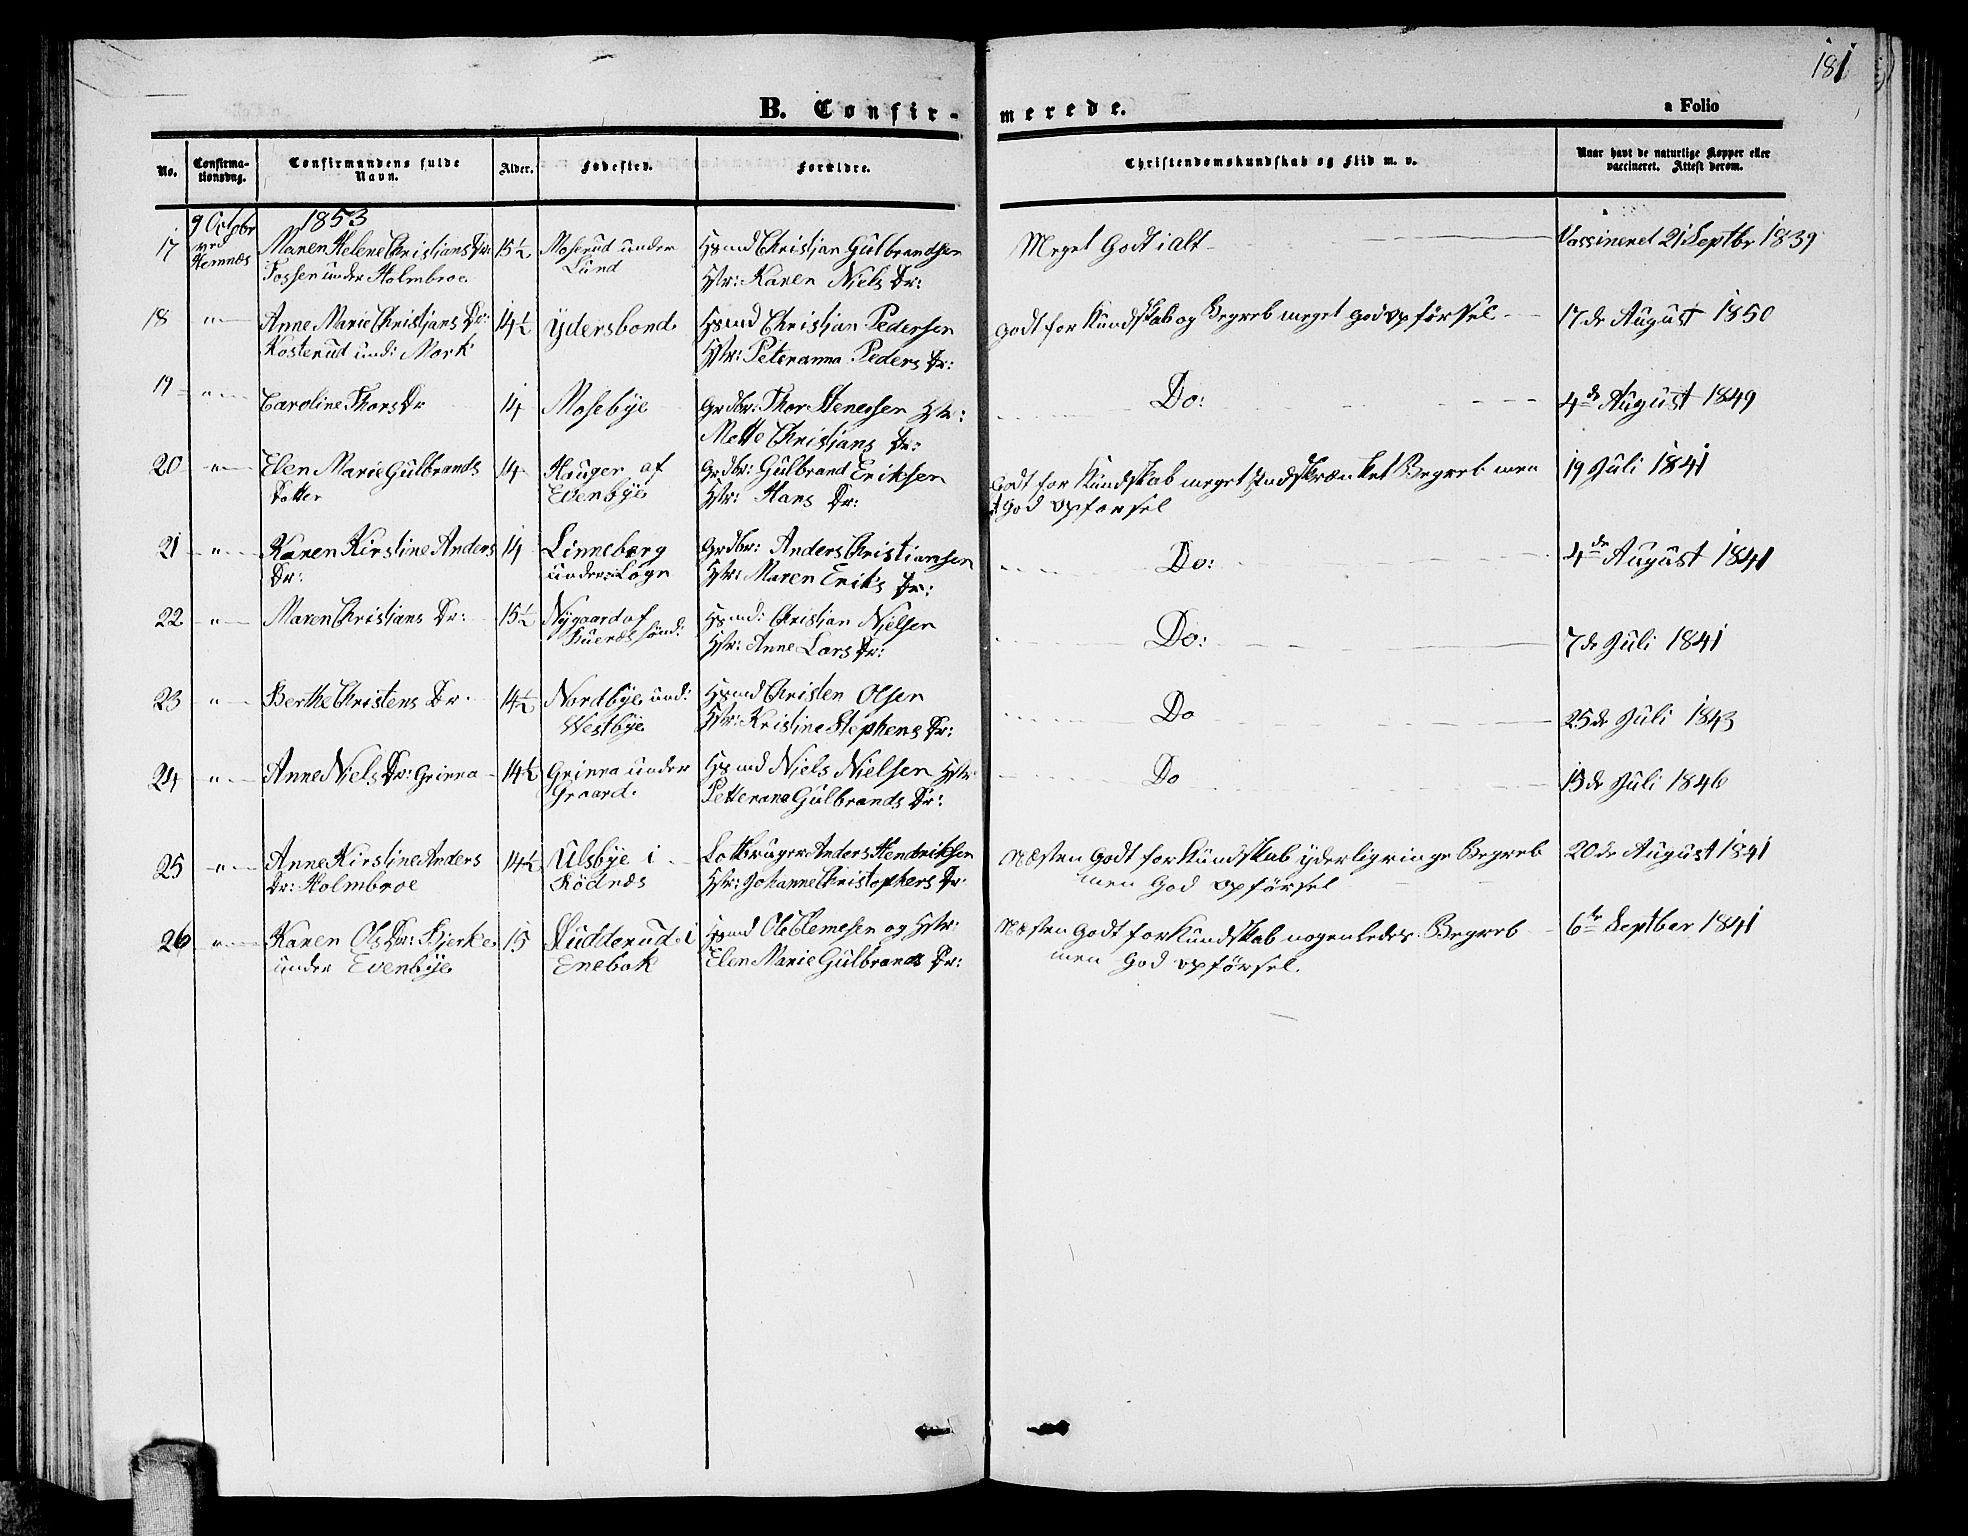 181
B. Confir-merede.
a Folio
No.
Confirma-
tionsdag.
Confirmandens fulde
Navn.
Alder.
Fødested.
Forældre.
Christendomskundskab og Flid m. v.
Naar havt de naturlige Kopper eller
vaccineret. Attest derom.
9 Octobr 1853
ved
Hemnæs
17 Maren Helene Christians Dr: 15½ Moserud under Hsmd Christjan Gulbrandsen Meget Godt i alt Vassineret 21 Septbr 1839
Fossen under Holmbroe Lund Hstr: Karen Niels Dr:
18 " Anne Marie Christjans Dr: 14½ Ydersbond Hsmd Christjan Pedersen Godt for Kundskab og Begreb meget god opførsel 17de August 1850
Kosterud und: Mork Hstr: Peteranna Peders Dr:
19 " Caroline Thors Dr 14 Mosebye Grdbr: Thor Stenersen Hstr: Do: 4de August 1849
Mette Christjans Dr:
20 " Elen Marie Gulbrands 14 Hauger af Grdbr: Gulbrand Eriksen Godt for Kundskab meget indskrænket Begreb men 19 Juli 1841
Datter Evenbye Hstr: Hans Dr: god opførsel
21 " Karen Kirstine Anders 14 Linneberg Grdbr: Anders Christiansen Do: 4de August 1841
Dr: under Logn Hstr: Maren Eriks Dr:
22 " Maren Christjans Dr: 15½ Nygaard af Hsmd: Christian Nielsen Do: 7de Juli 1841
sönd: Hstr: Anne Lars Dr:
23 " Berthe Christens Dr. 14½ Nordbye und: Hsmd Christen Olsen Do 25de Juli 1843
Westbye Hstr: Kristine Stephens Dr:
24 " Anne Niels Dr: Grinna 14½ Grinna under Hsmd Niels Nielsen Hstr: Do 13de Juli 1846
Graard Petterana Gulbrands Dr:
25 " Anne Kirstine Anders 14½ Ulsbye i Lotbruger Anders Hendriksen Næsten Godt for Kundskab yderlig ringe Begreb 20de August 1841
Dr: Holmbroe Rödnæs Hstr: Johanne Christophers Dr: men God opførsel
26 " Karen Ols Dr: Bjerke 15 Skudderud i Hsmd Ole Clemesen og Hstr: Næsten Godt for Kundskab nogenledes Begreb 6te Septber 1841
under Evenbye Enebak Elen Marie Gulbrands Dr: men God opførsel.